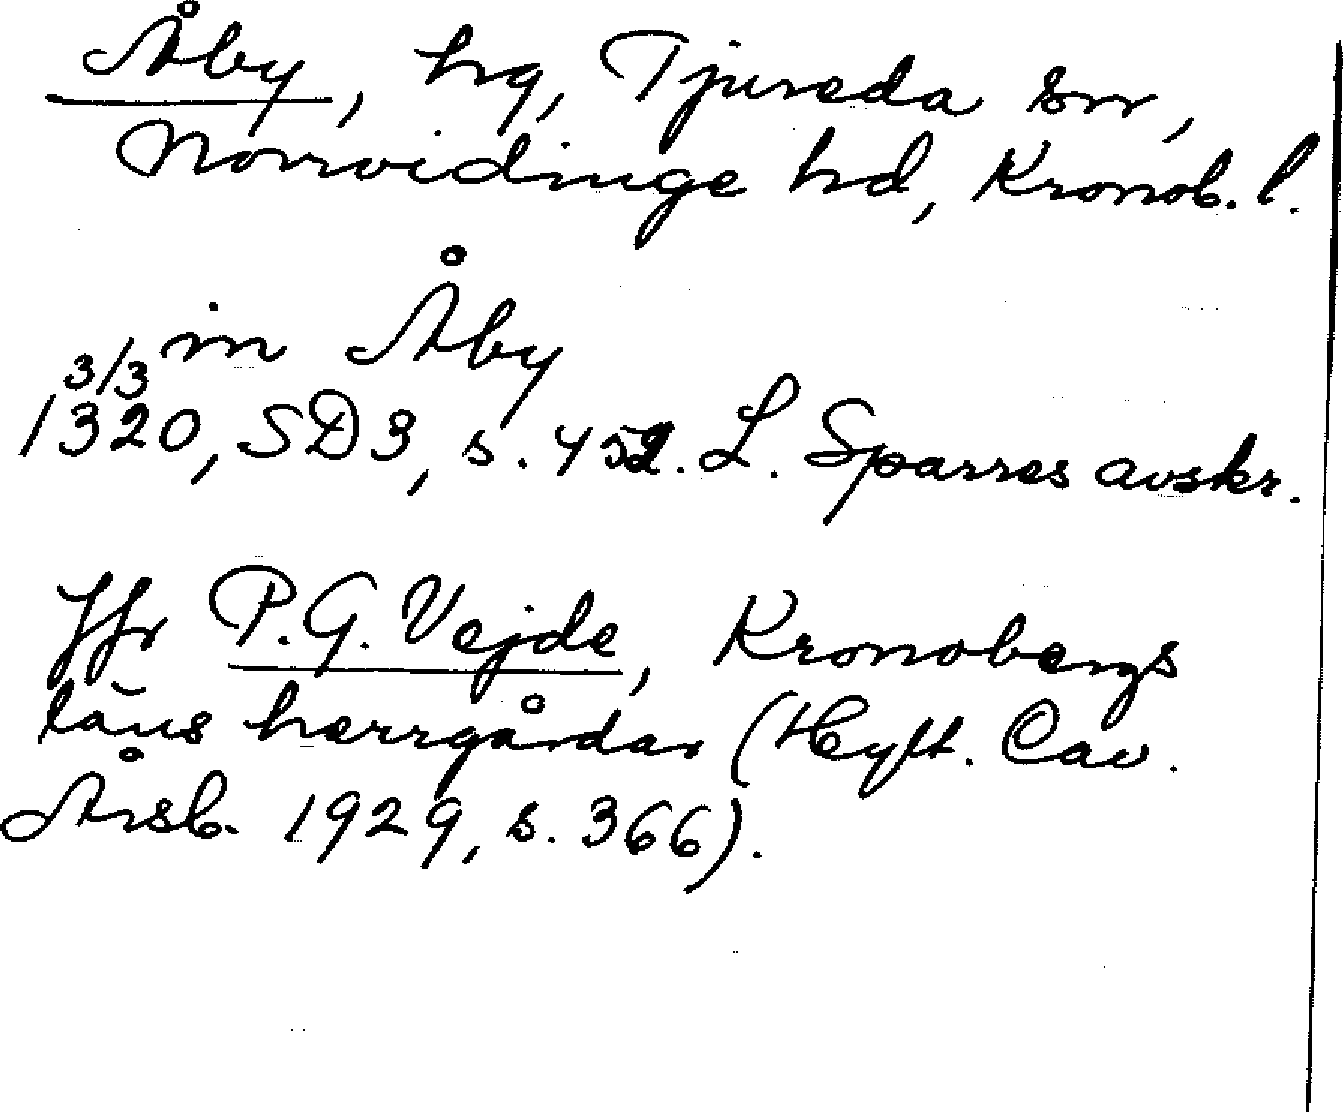 Åby, hg, Tjureda sn,
Norrvidinge hd, Kronob. l.
in Åby
3/3
1320, SD3, s. 452. L. Sparres avskr.
Jfr P. G. Vejde, Kronobergs
läns herrgårdar (Hylt. Cav.
Årsb. 1929, s. 366).